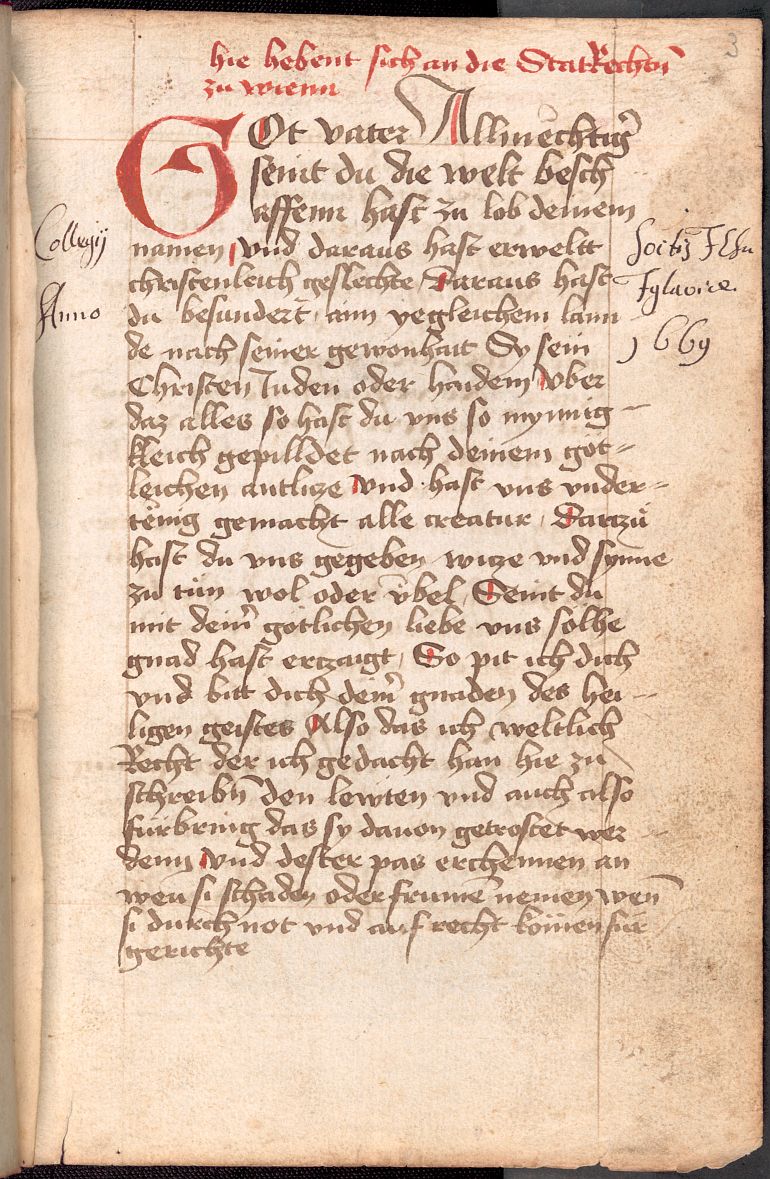 3
hie hebent sich an die StatRechtn̄
zu wienn
GOt vater Allmechtig̃
seint du die welt besch
affenn hast zu lob deinem
namen vnd daraus hast erweltt
christenleich geslechte, Daraus hast
du besundert, ainn yegleichem lann
de nach seiner gewonhait Sy sein
Christen Juden oder haidem Vber
daz alles so hast du vns so mynnig
kleich gepilldet nach deinem göt=
leichen antlicze vnd hast vns vnder=
tenig gemacht alle creatur, Darczü
hast du vns gegeben witze vnd synne
zu tün wol oder übel, Seint du
mit dein̄ götlichen liebe vns solhe
gnad hast erczaigt, So pit ich dich
vnd bitt dich dein̄ gnaden des hei
ligen geistes Also das ich weltlich
Recht der ich gedacht han hie zu
schreibn̄ den lewten vnd auch also
fürbring das sy dauon getrostet wer
denn vnd dester pas erchennen an
wen si schaden oder frumē nemen wen̄
si durch not vnd auf recht kömen für
gerichte
Collegij
Anno
Socitis JEsu
Iglaviae
1669